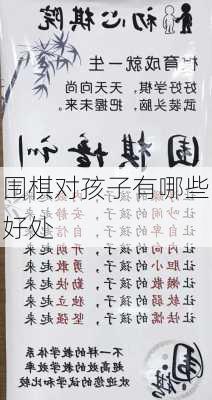 初心棋院
棋育成就一生
好好学棋，天天向尚
武装头脑，把握未来
围棋培训
围棋对孩子有哪些
好处
让 的孩子，安静起来
让自卑的孩子，自信起来
让 的孩子，开朗起来
让胆小的孩子，勇敢起来
让懒散的孩子，起来
让 的孩子，独立起来
让 的孩子，坚强起来
不一样的教学体系
高效的教学方法
欢迎您的试学和比较
围棋